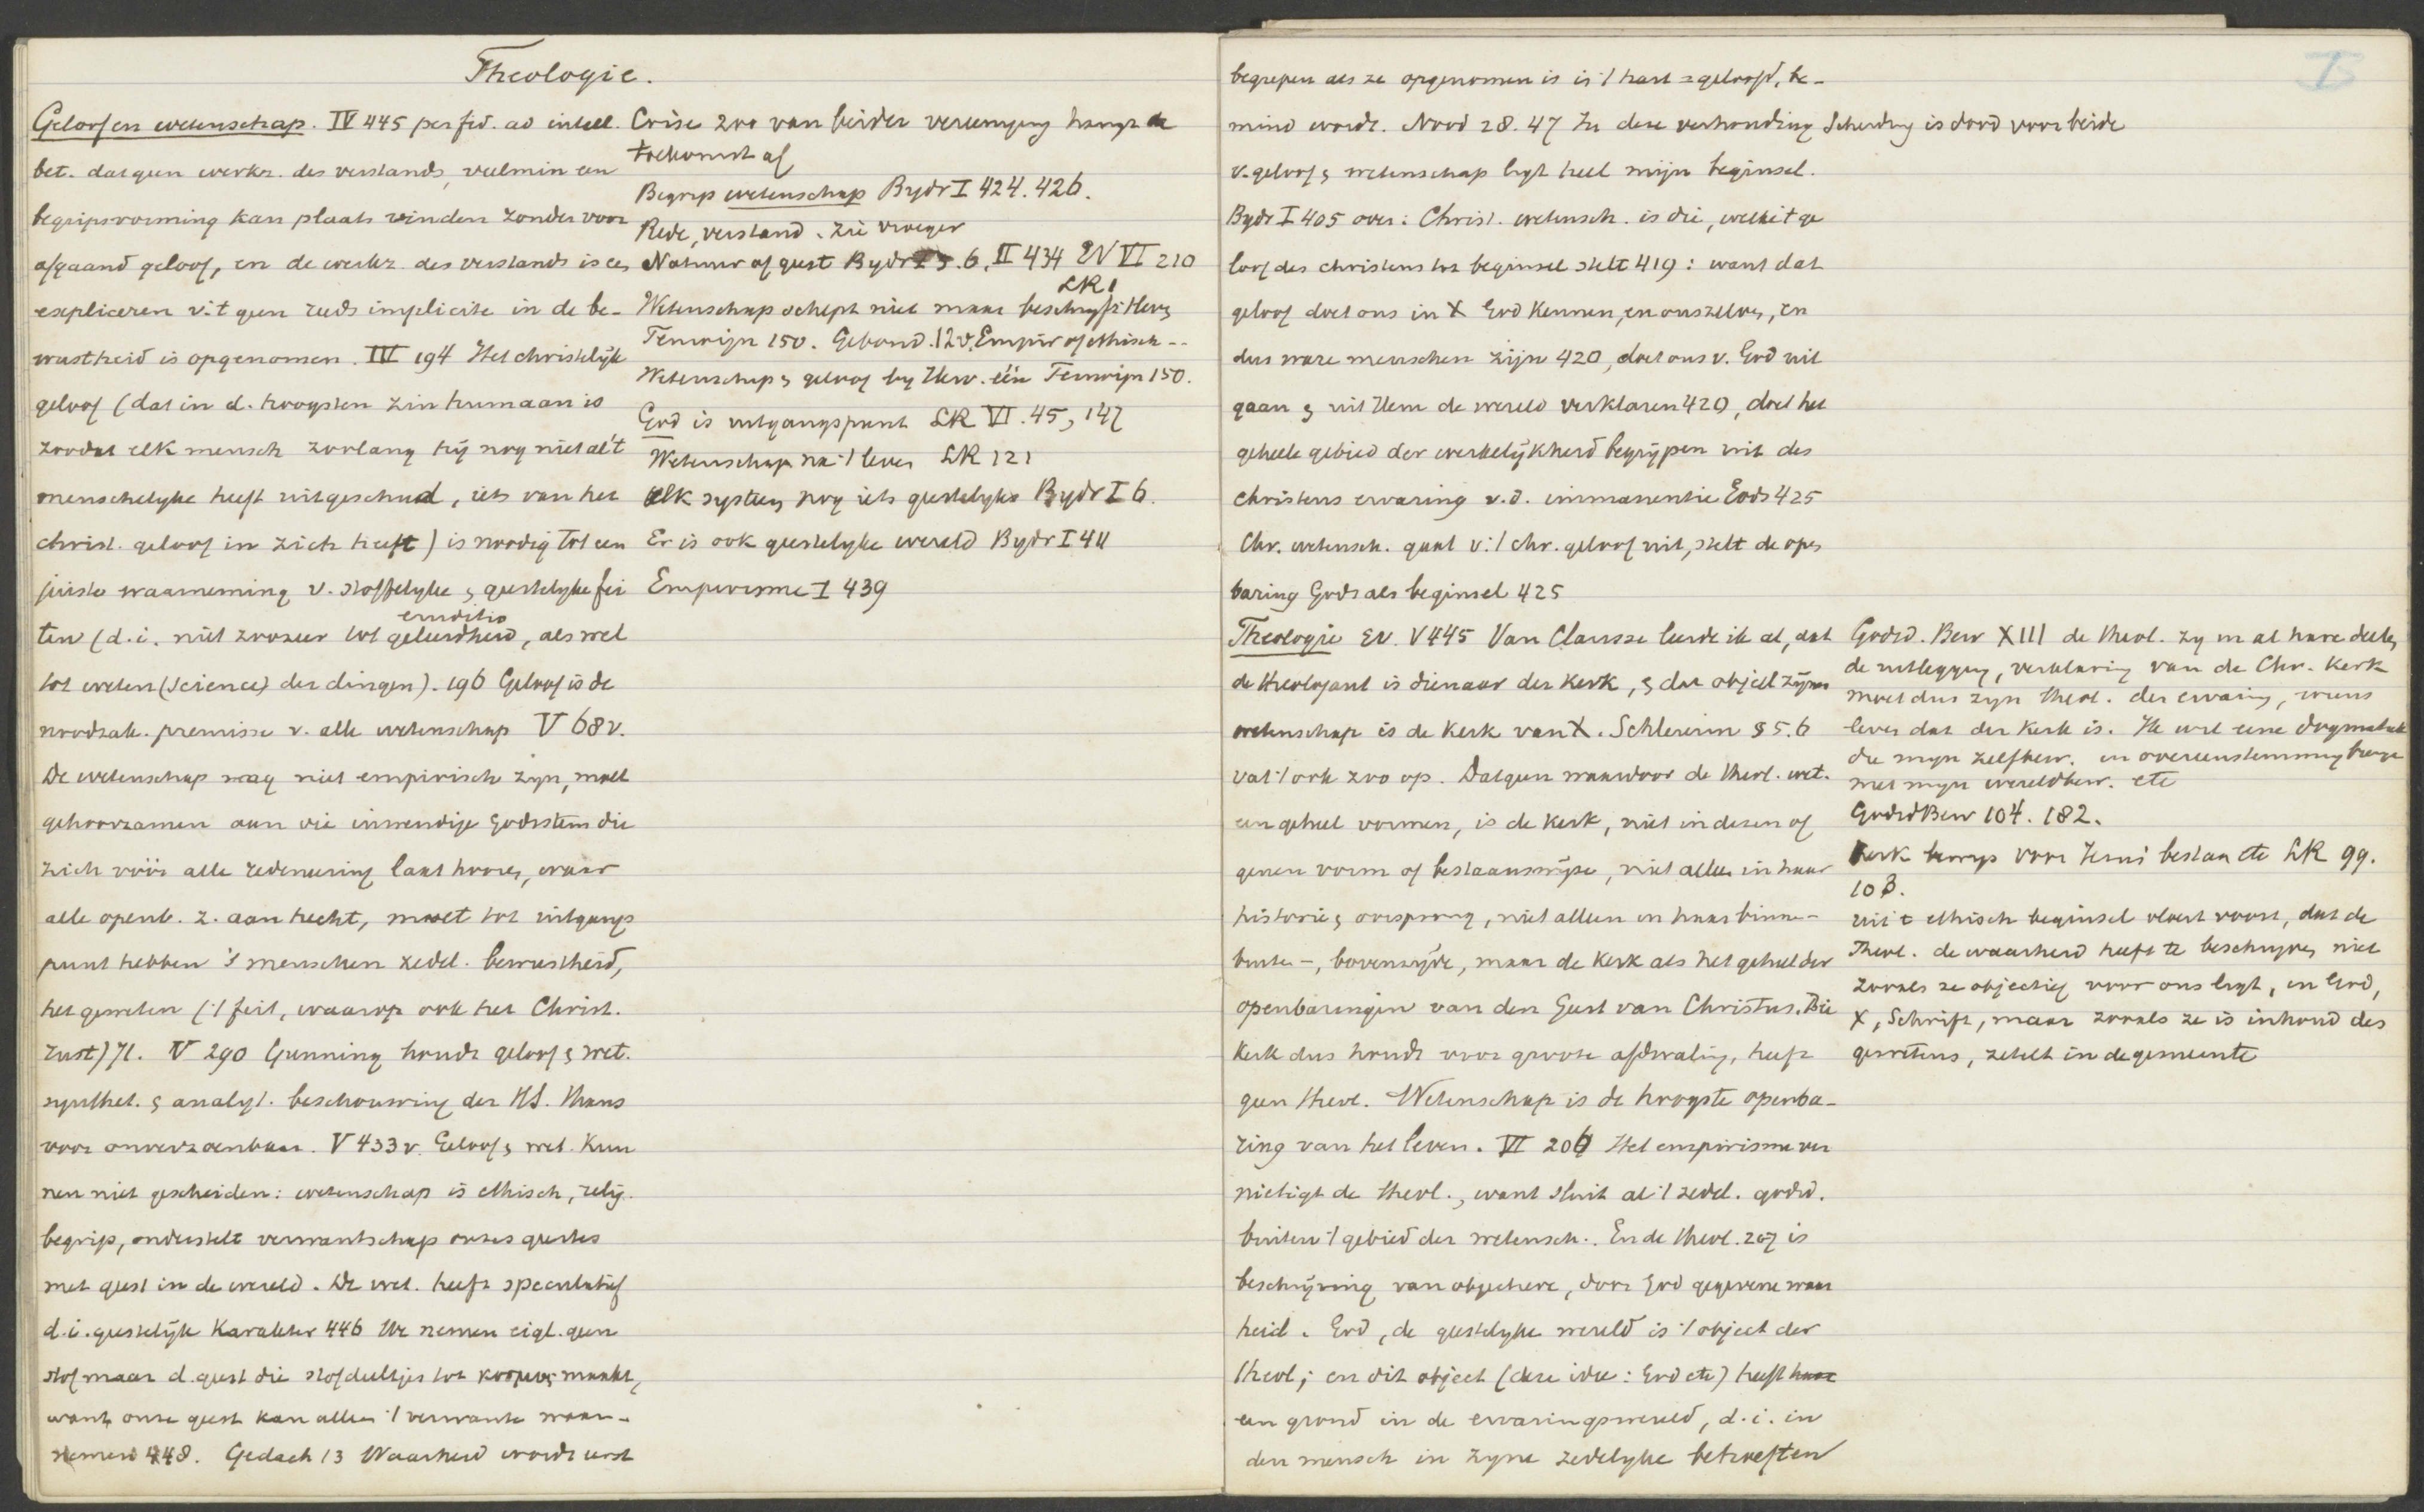 Theologie.
Geloof en wetenschap. IV 445 per fid. ad intell.
bet. dat geen werkz. des verstands, veelmin een
begripsvorming kan plaats vinden zonder voor
afgaand geloof, en de werkz. des verstands is een
expliceren v. 't geen reeds implicite in de be-
wustheid is opgenomen. IV 194 Het christelijk
geloof (dat in d. hoogsten zin humaan is
zoodat elk mensch zoolang hij nog niet al 't
menschelyke heeft uitgeschud, iets van het
christ. geloof in zich heeft) is noodig tot een
juiste waarneming v. stoffelyke & geestelyke fei
ten (d.i. niet zoozeer tot geleerdheid, als wel
eruditio
tot weten (science) der dingen). 196 Geloof is de
noodzak. premisse v. alle wetenschap V 68v.
De wetenschap mag niet empirisch zyn, moet
gehoorzamen aan die inwendige Godsstem die
zich vóór alle redeneering laat hooren, waar
alle openb. z. aan hecht, moet tot uitgangs
punt hebben 's menschen zedel. bewustheid,
het geweten ('t feit, waarop ook het Christ.
rust) 71. V 290 Gunning houdt geloof & wet.
synthet. & analyt. beschouwing der HS. thans
voor onverzoenbaar. V 433v. Geloof & wet. kun
nen niet gescheiden: wetenschap is ethisch, relig.
begrip, onderstelt verwantschap onzes geestes
met geest in de wereld. De wet. heeft speculatief
d.i. geestelijk karakter 446 We nemen eigl. geen
stof maar d. geest die stofdeeltjes tot korpus maakt,
want onze geest kan alleen 't verwante waar-
nemen 448. Gedach 13 Waarheid wordt eerst
Crise 200 van beider vereeniging hangt de
toekomst af
Begrip wetenschap Bydr I 424. 426.
Rede, verstand. zie vroeger
Natuur of geest Bydr I 5.6. II 434 EV VI 210
LR
Wetenschap schept niet maar beschryft
Terwijn 150. Gebond. 12v. Empir of ethisch --
Wetenschap & geloof by Herv. één Terwijn 150.
God is uitgangspunt LR VI. 45, 147
Wetenschap na 't leven LR 121
Elk systeem nog iets geestelyks Bydr I 6.
Er is ook geestelyke wereld Bydr I 411
Empirisme I 439
begrepen als ze opgenomen is in 't hart = geloofd, be-
mind wordt. Nood 28. 47 In deze verhouding Scheiding is dood voor beide
v. geloof & wetenschap ligt heel mijn beginsel.
Bydr I 405 over: Christ. wetensch. is die, welke 't ge
loof des christens tot beginsel stelt 419: want dat
geloof doet ons in X God kennen, en ons zelven, en
dus ware menschen zijn 420, doet ons v. God uit
gaan & uit Hem de wereld verklaren 420, doet het
geheele gebied der werkelijkheid begrijpen uit des
christens ervaring v.d. immanentie Gods 425
Chr. wetensch. gaat v. 't chr. geloof uit, stelt de open
baring Gods als beginsel 425
Theologie EV. V 445 Van Clarisse leerde ik al, dat
de theologant is dienaar der kerk, & dat object zijner
wetenschap is de kerk van X. Schleierm § 5.6
vat 't ook zoo op. Datgeen waardoor de theol. wet.
een geheel vormen, is de kerk, niet in dezen of
genen vorm of bestaanswijze, niet alleen in haar
historie & oorsprong, niet alleen in haar binnen-
buiten-, bovenzijde, maar de kerk als het geheel der
openbaringen van den Geest van Christus. Die
kerk dus houdt voor groote afdwaling, heeft
geen theol. Wetenschap is de hoogste openba-
ring van het leven. VI 206 Het empirisme ver
nietigt de theol., want sluit al 't zedel. godsd.
buiten 't gebied der wetensch.. En de theol. 207 is
beschrijving van objectieve, door God gegevene waar
heid. God, de geestelyke wereld is 't object der
theol; en dit object (deze idee: God etc) heeft haar
een grond in de ervaringswereld, d.i. in
den mensch in zyne zedelyke behoeften
Godsd. Bew XIII de theol. zy in al hare deelen
de uitlegging, verklaring van de Chr. kerk
moet dus zyn theol. der ervaring, wiens
leven dat der kerk is. Ik wil eene dogmatiek
die mijn zelfbew. in overeenstemming brenge
met mijn wereldbew. etc
GodsdBew 104. 182.
Kerk bewys voor Jezus' bestaan etc LR 99.
103.
uit 't ethisch beginsel vloeit voort, dat de
Theol. de waarheid heeft te beschryven niet
zooals ze objectief voor ons ligt, in God,
X, Schrift, maar zooals ze is inhoud des
gewetens, zetelt in de gemeente